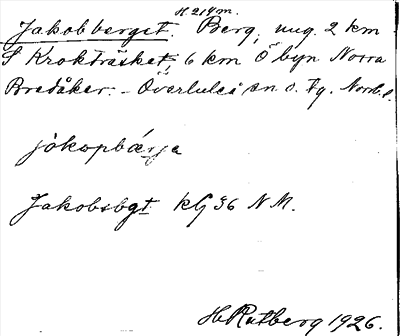 H 214 m.
Jakobberget. Berg, ung. 2 km
S Krokträsket, 6 km Ö byn Norra
Bredåker. - Överluleå sn o. tg. Norrb. l.
jakopbærje
Jakobsbgt kG 36 N M.
H. Rutberg 1926.